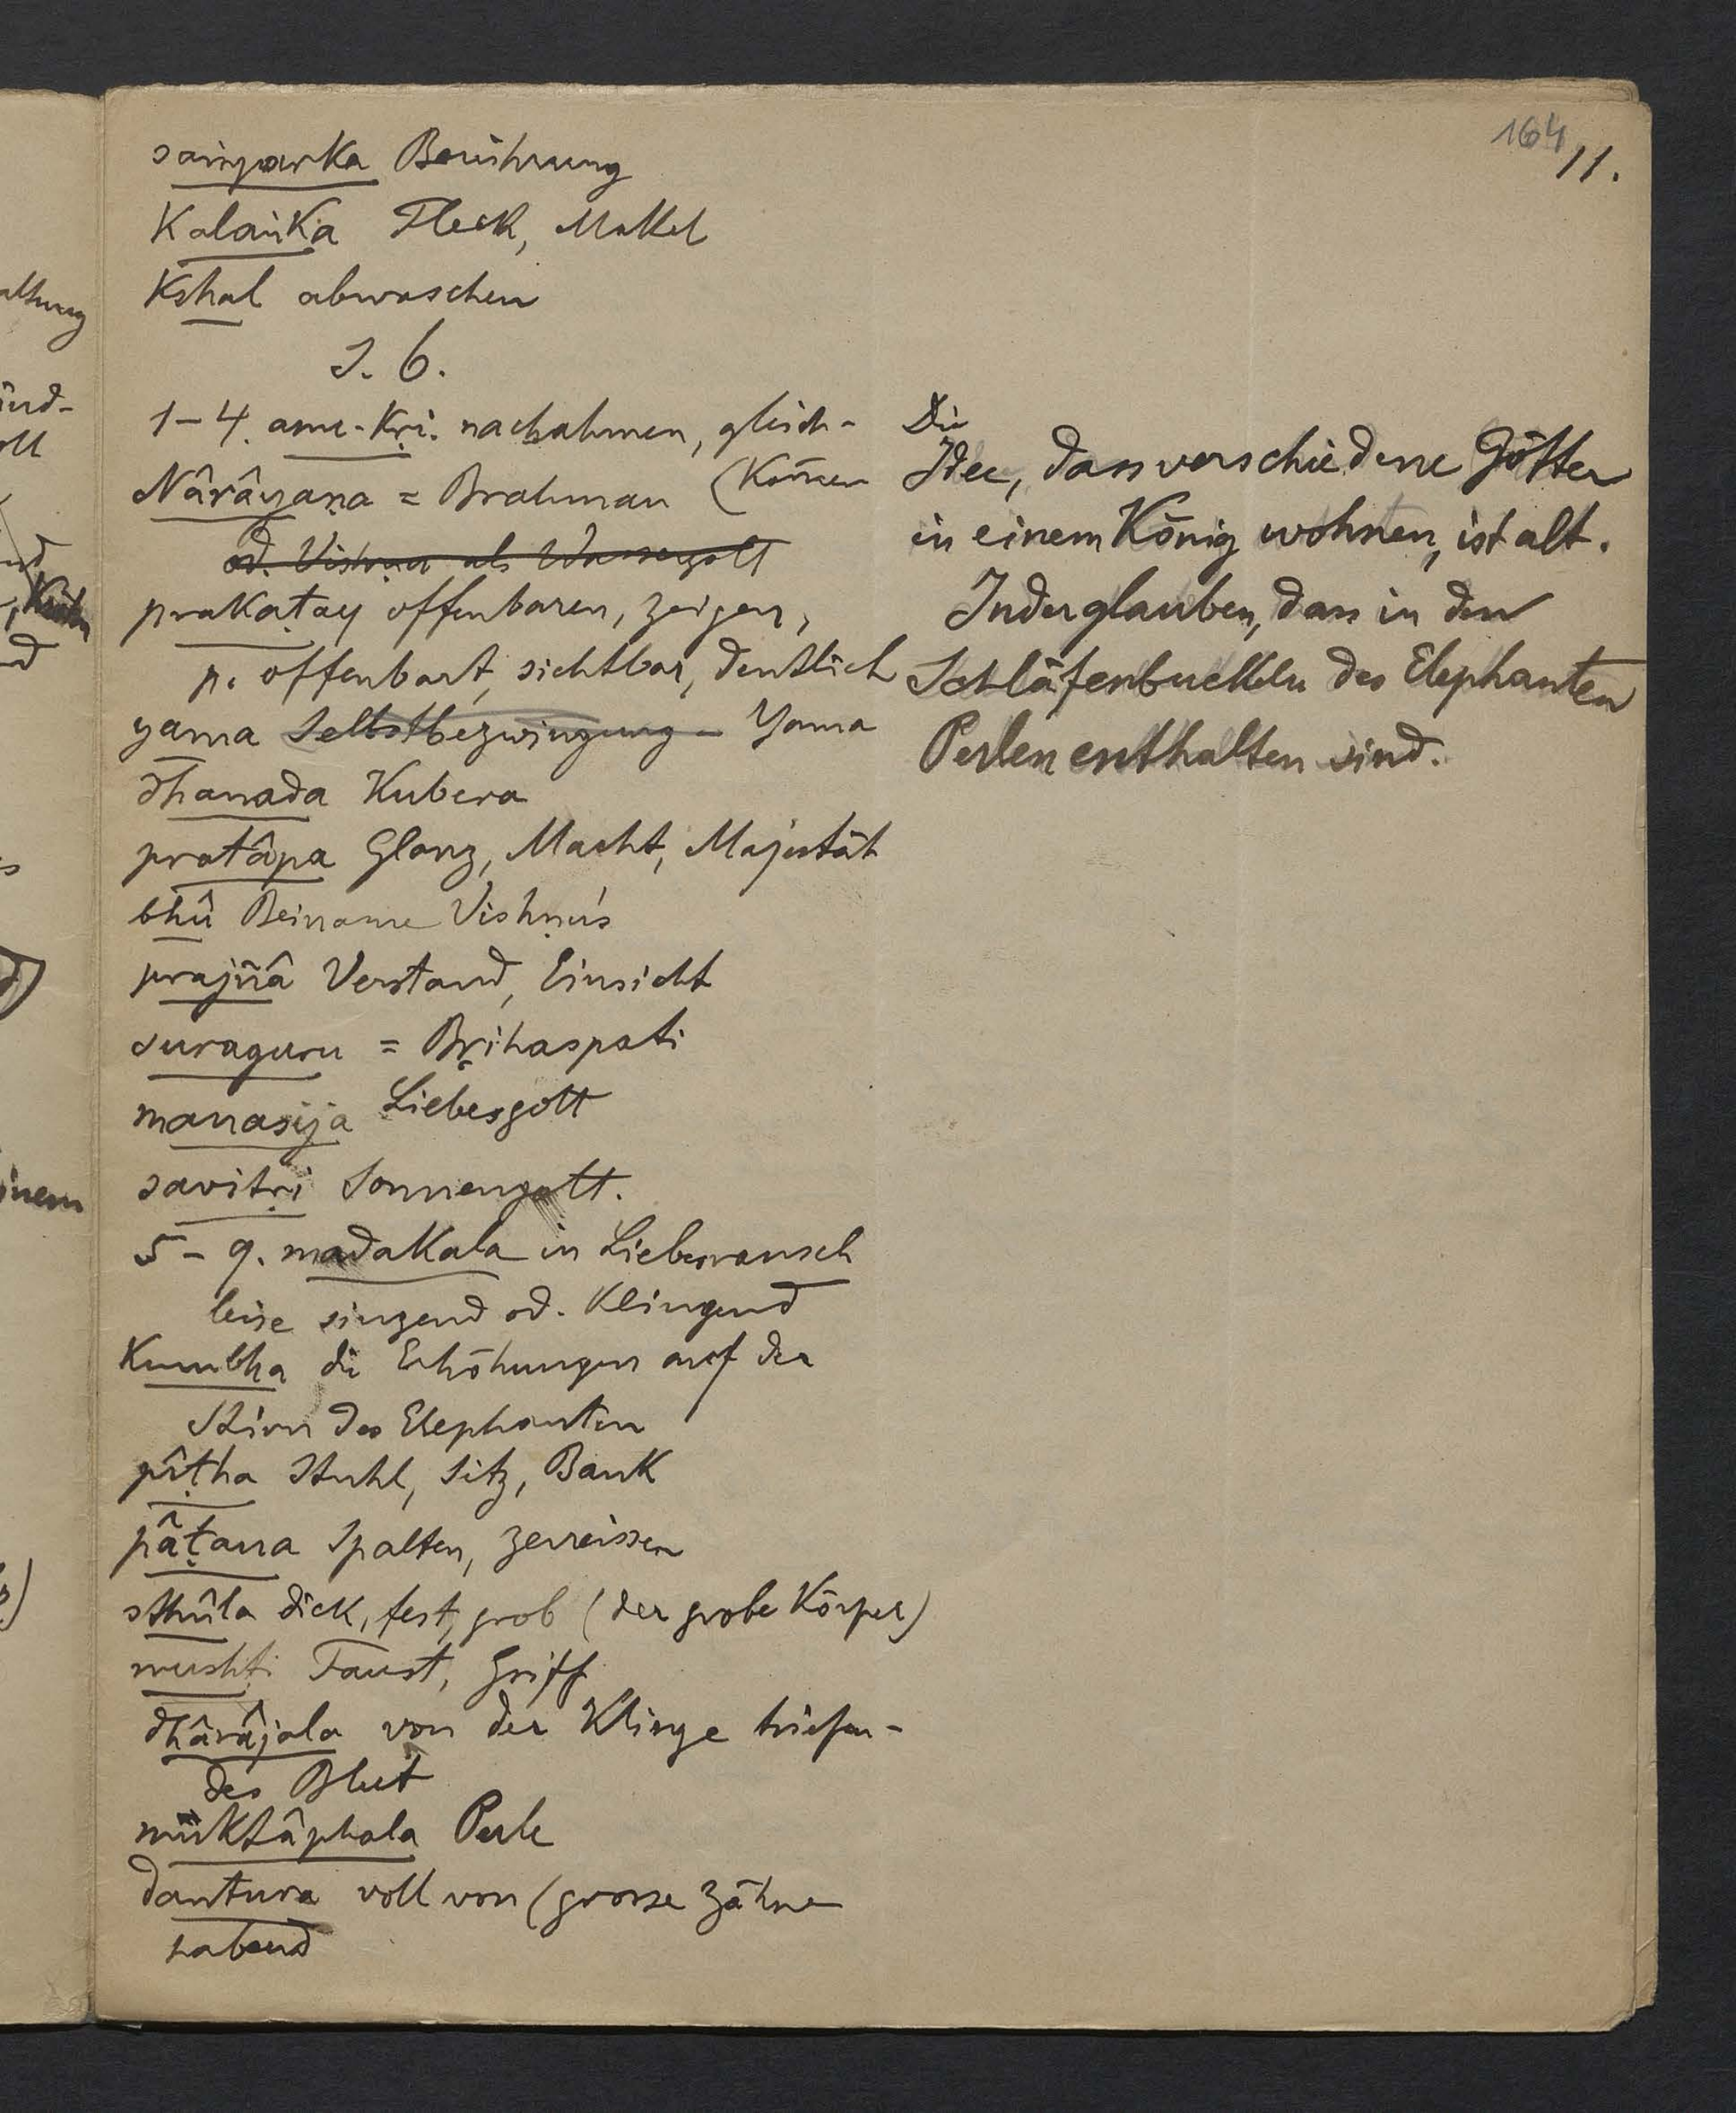 164
11.
saṁparka Berührung
Kalaṅka Fleck, Makel
Kshal abwaschen
S. 6.
1-4. anu-kṛi. nachahmen, gleich-
Nârâyaṇa = Brahman (kom̄en
od. Vishṇu als Wassergott
prakaṭay offenbaren, zeigen,
p. offenbart, sichtbar, deutlich
yama Selbstbezwingung - Yama
dhanada Kubera
pratâpa Glanz, Macht, Majestät
bhû Beiname Vishṇu's
prajñâ Verstand, Einsicht
suraguru = Bṛihaspati
manasija Liebesgott
savitṛi Sonnengott.
5-9. madakala in Liebesrausch
leise singend od. klingend
Kumbha die Erhöhungen auf der
Stirn des Elephanten
pîṭha Stuhl, Sitz, Bank
pâṭana Spalten, zerreissen
sthûla dick, fest, grob (der grobe Körper)
mushṭi Faust, Griff
dhârâjala von der Klinge triefen-
des Blut
muktâphala Perle
dantura voll von (grosse Zähne
habend
Die
Idee, dass verschiedene Götter
in einem König wohnen, ist alt.
Inder glauben, dass in den
Schläfenbuckeln des Elephanten
Perlen enthalten sind.